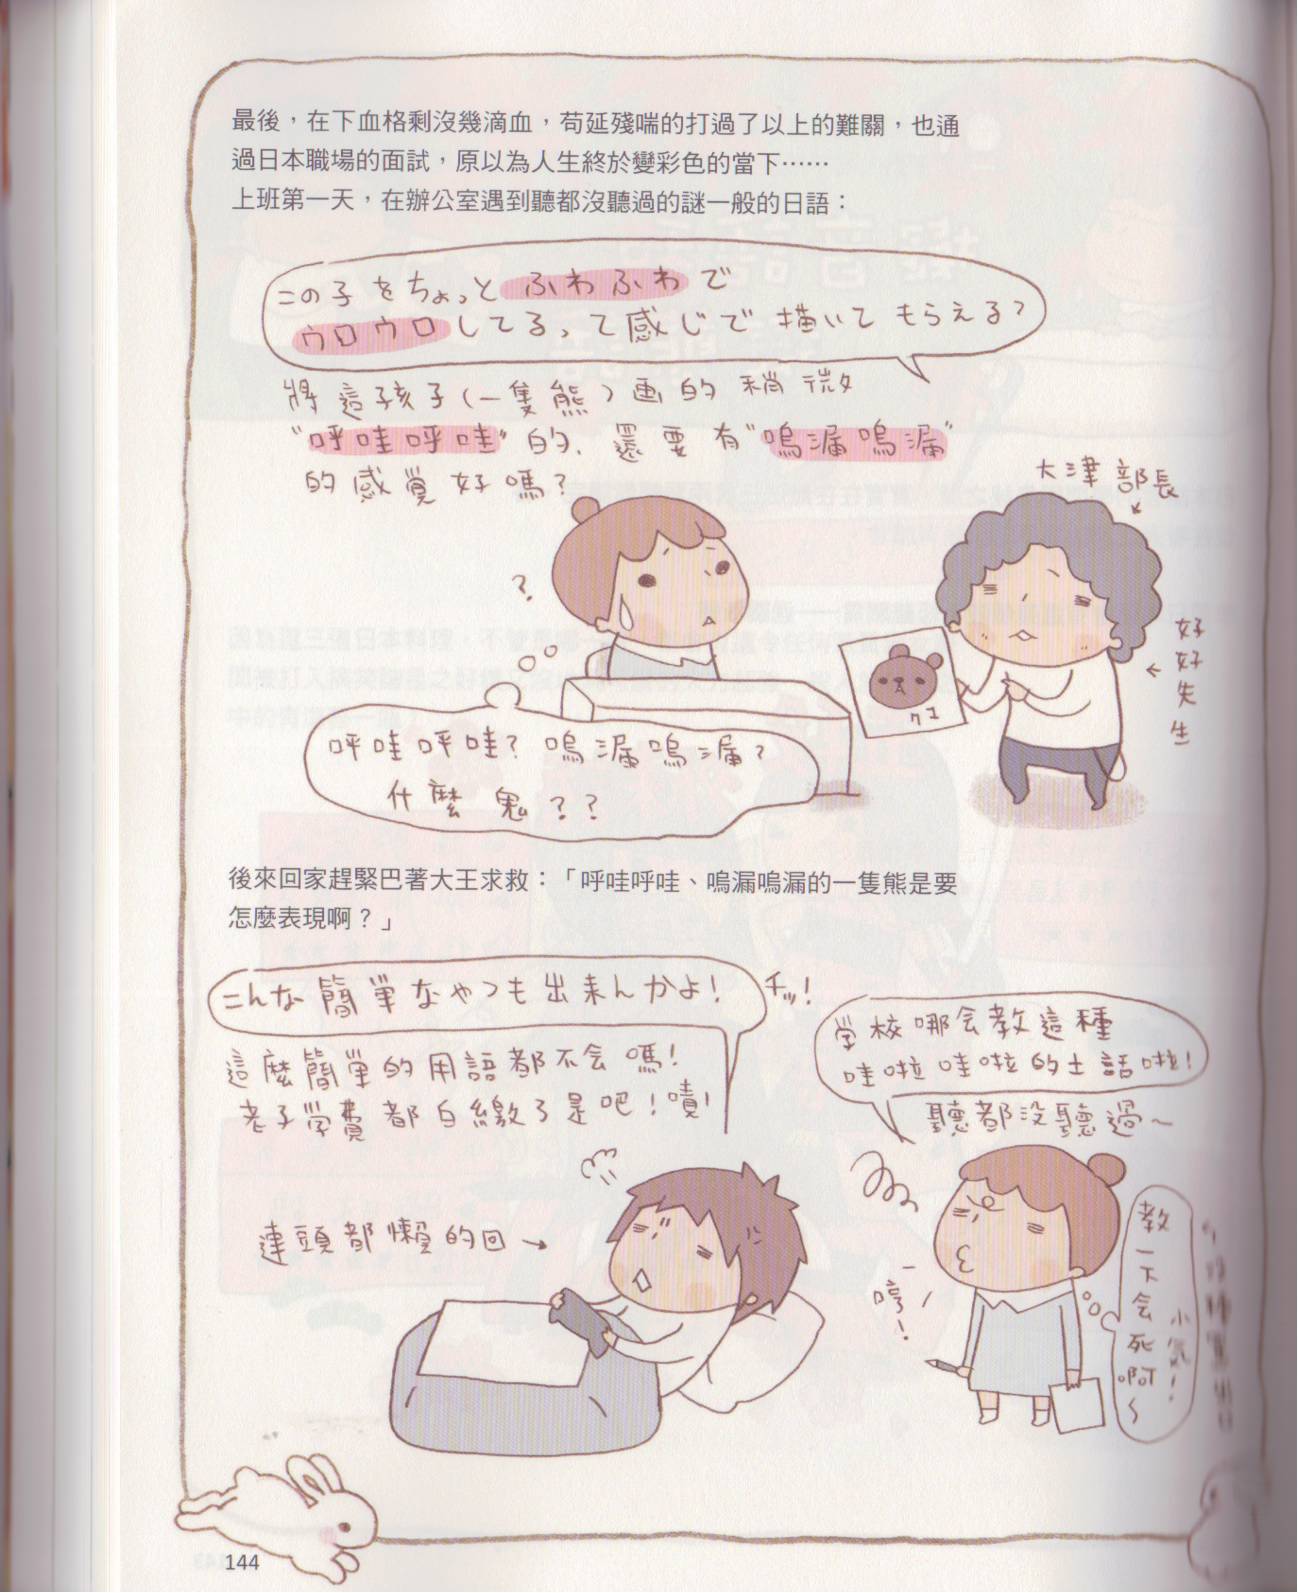 最後，在下血格剩沒幾滴血，苟延殘喘的打過了以上的難關，也通
過日本職場的面試，原以為人生終於變彩色的當下⋯⋯
上班第一天，在辦公室遇到聽都沒聽過的謎一般的日語：
この子をちょっとふわふわで
ウロウロしてるって感じで描いてもらえる？
將這孩子(一隻熊)画的稍微
“呼哇呼哇”的、還要有“嗚漏嗚漏”
的感覚好嗎？
大津部長
好好先生
？
クエ
呼哇呼哇？嗚漏嗚漏？
什麼鬼？？
後來回家趕緊巴著大王求救：「呼哇呼哇、嗚漏嗚漏的一隻熊是要
怎麼表現啊？」
こんな簡単なやつも出来んかよ！
チッ！
這麼簡単的用語都不会嗎！
老子学費都白繳了是吧！嘖！
学校哪会教這種
哇啦哇啦的土話啦！
聽都没聽過～
連頭都懶的回→
哼！
教一下会死啊～
小気！
144